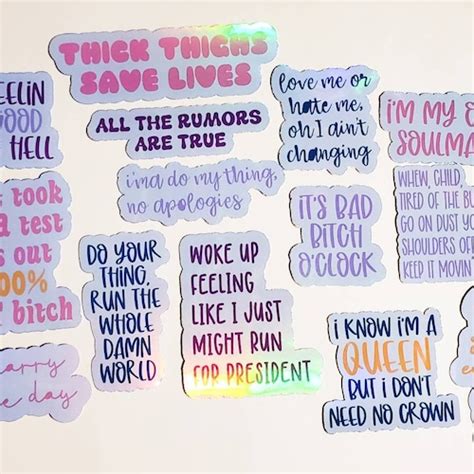 THICK THIGHS
SAVE LIVES
ALL THE RUMORS
ARE TRUE
i'ma do my thing,
no apologies
love me or
hate me,
oh I ain't
changing
i'M MY
SOULMA
EELIN
OOD
HELL
s took
a test
s out
00%
bitch
DO YOUR
THING,
RUN THE
WHOLE
DAMN
WORLD
WOKE UP
FEELING
LIKE I JUST
MIGHT RUN
FOR PRESIDENT
IT'S BAD
BITCH
O'CLOCK
WHEW, CHILD,
TIRED OF THE BU
GO ON DUST YOU
SHOULDERS O
KEEP IT MOVIN'
i KNOW i'M A
QUEEN
BUT i DON'T
NEED NO CROWN
arry
e day